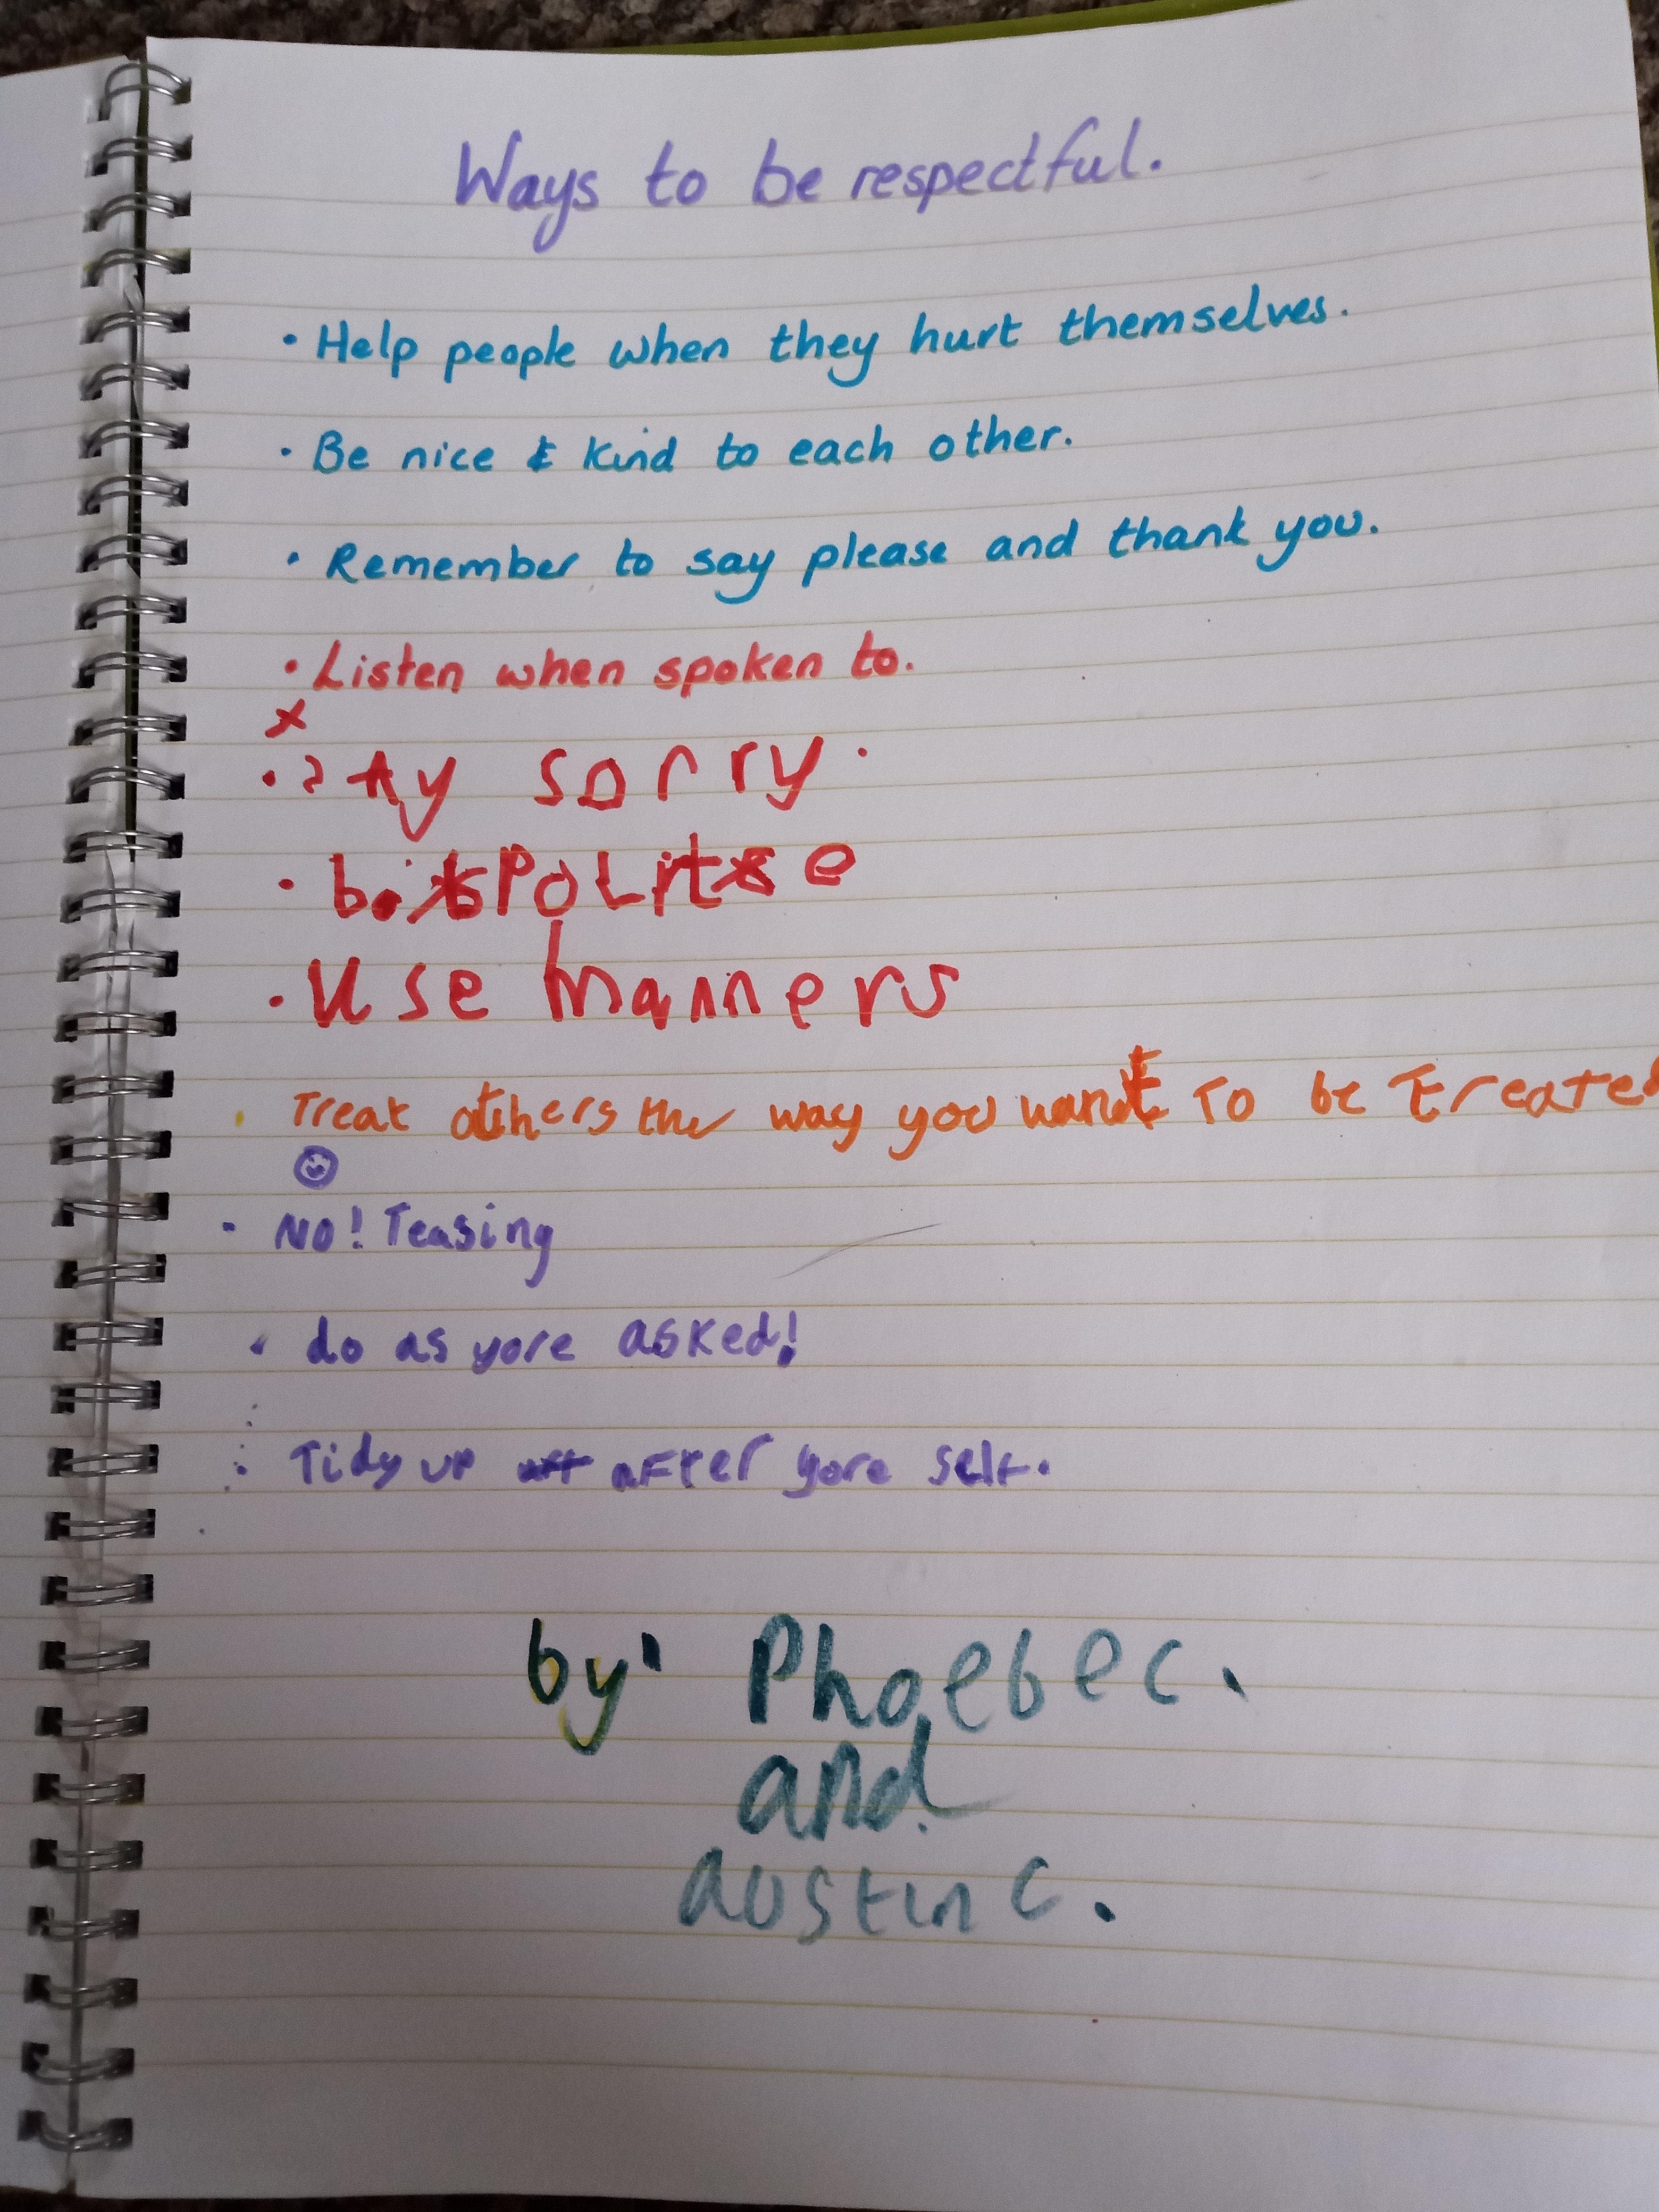 Ways to be respectful.
• Help people when they hurt themselves.
• Be nice & kind to each other.
• Remember to say please and thank you.
• Listen when spoken to.
x
• sAy sorry.
• be PoLite
• Use manners
• Treat others the way you want To be treated
• NO! Teasing
• do as yore asked!
• Tidy up after yore self.
by' Phoebe c.
and
austin c.